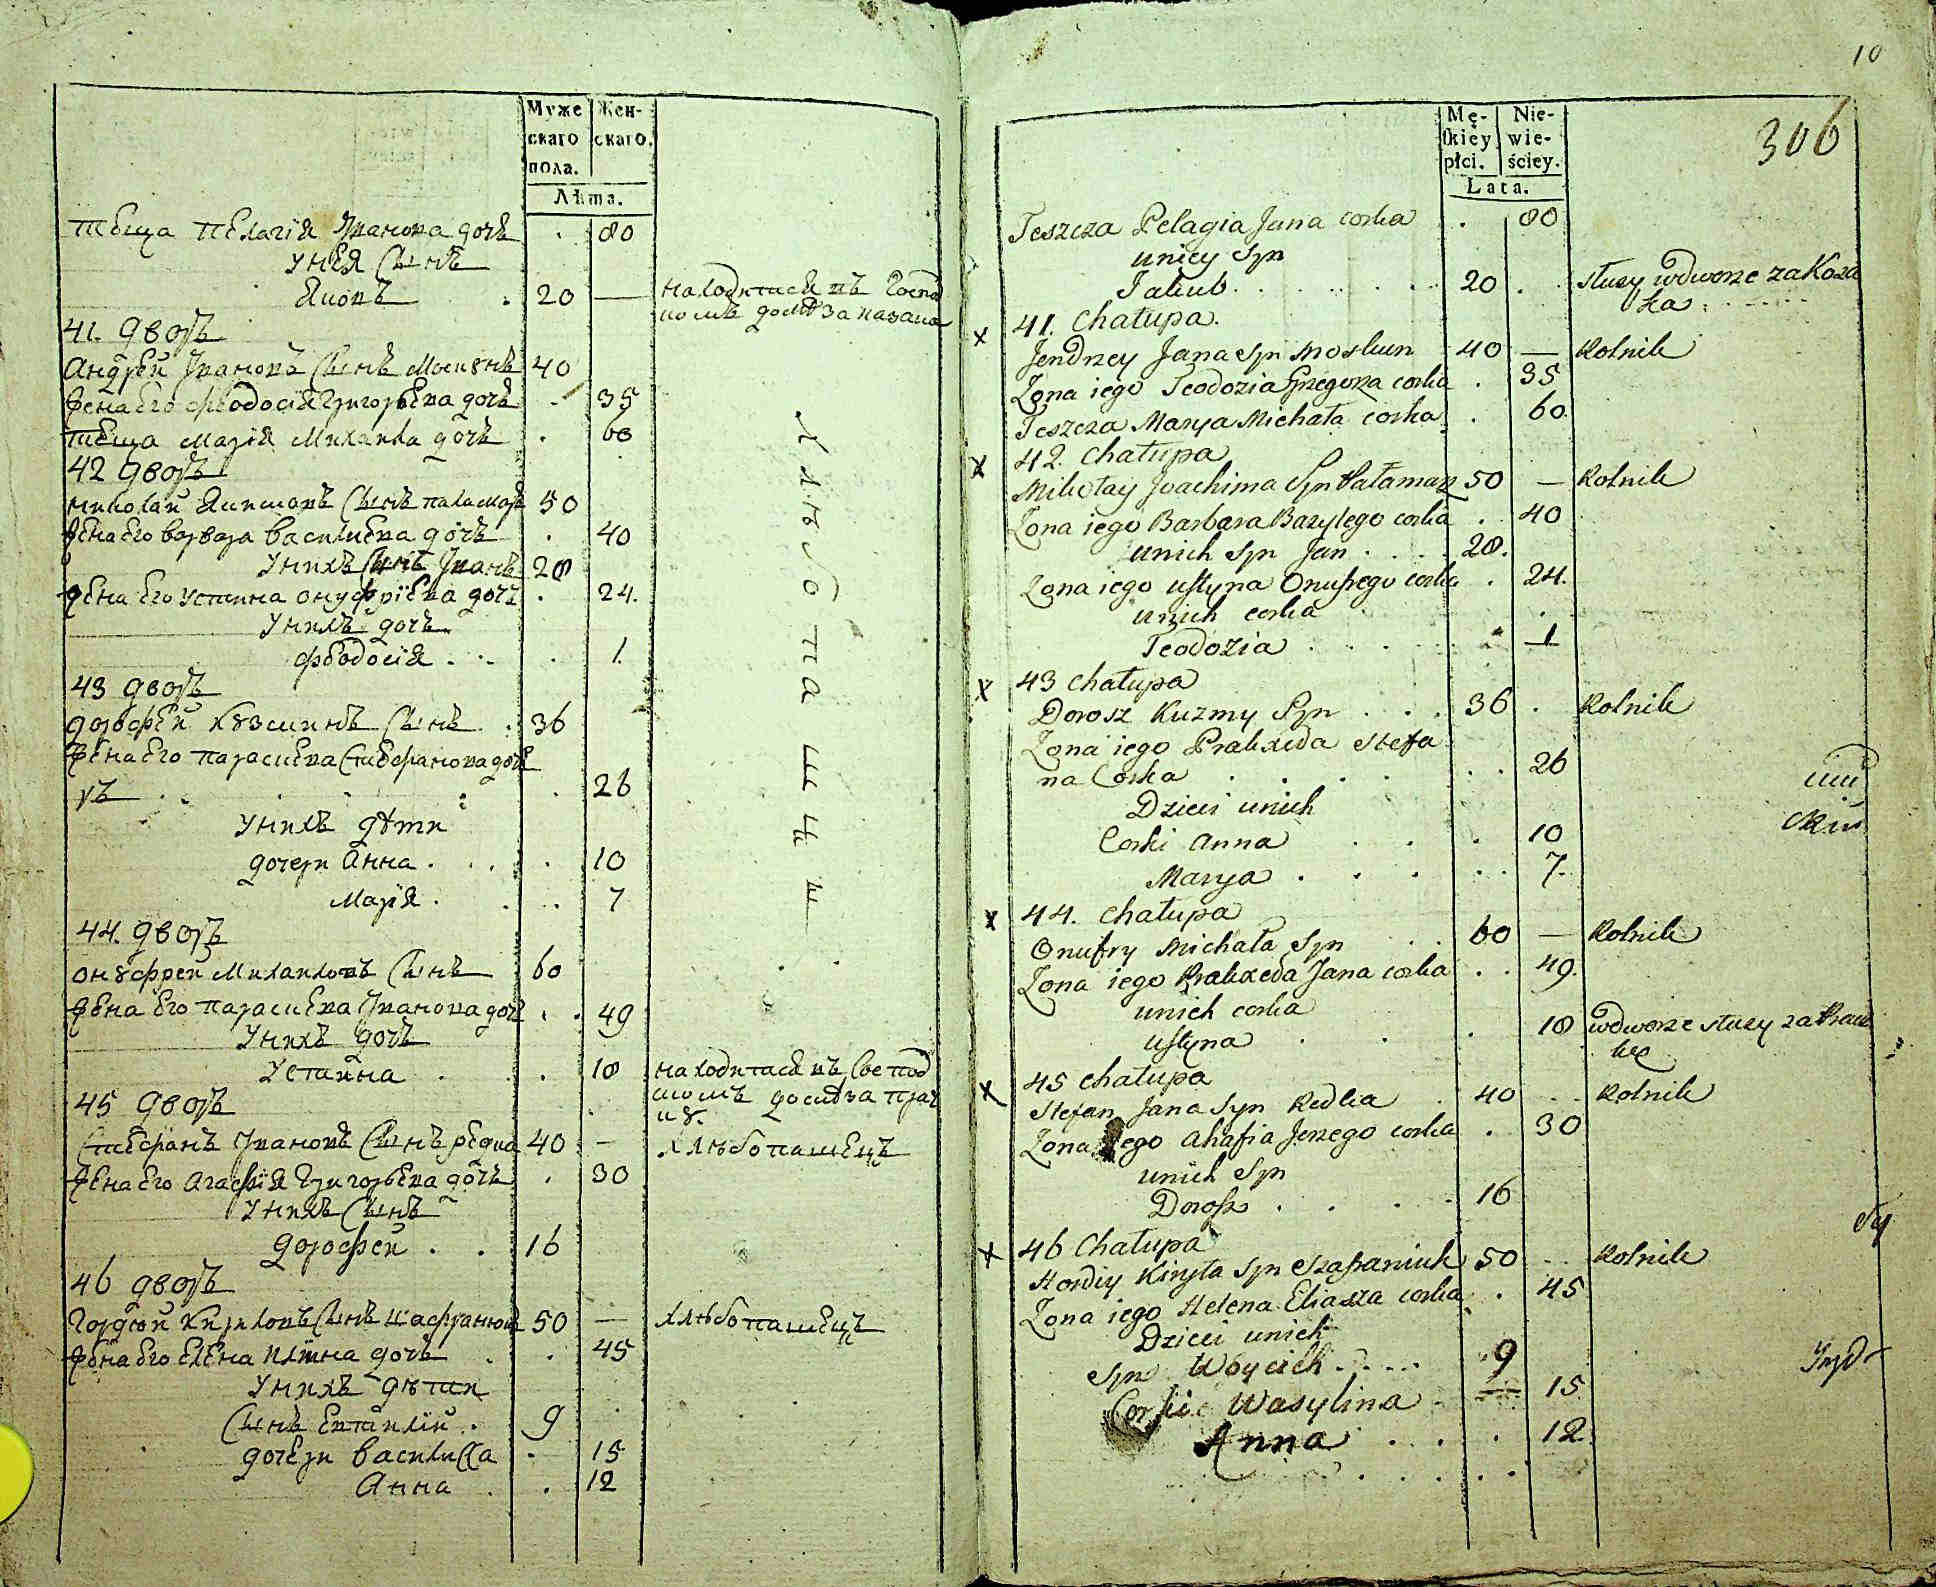 Муже
скаго
пола.
Жен-
скаго.
Лѣта.
теща Пелагія Иванова дочь . 80
У нея сынъ
Яковъ . 20 — находится въ господ
комъ домѣ за казака
41. дворъ
Андрей Ивановъ сынъ Москунъ 40
жена его Феодосія Григорьева дочь . 35
теща Марія Михаила дочь . 60
42 дворъ
Николай Якимовъ сынъ паламарь 50
жена его Варвара Василіева дочь . 40
У нихъ сынъ Иванъ 28
жена его Устина Онуфріева дочь . 24.
У нихъ дочь
Феодосія . . . 1.
43 дворъ
Дорофей Кузминъ сынъ . 36
жена его Параскева Стефанова доч
рь . . . 26
У нихъ дѣти
дочери Анна . . . 10
Марія . . . 7
44. дворъ
Онуфрей Михаиловъ сынъ 60
жена его Параскева Иванова доч . . 49
У нихъ дочь
Устина . . 18 находится въ господ
скомъ домѣ за прач
ку.
45 дворъ
Стефанъ Ивановъ сынъ Редка 40 — хлѣбопашецъ
жена его Агафія Григорьева дочь . 30
У нихъ сынъ
Дорофей . . 16
46 дворъ
Гордій Кириловъ сынъ Шафранюк 50 — хлѣбопашецъ
жена его Елена Иліина дочь . . 45
У нихъ дѣти
сынъ . 9
дочери Василисса . 15
Анна . . 12
Хлѣбопашцы
10
306
Mę-
ſkiey
płci.
Nie-
wie-
ściey.
Lata.
Teszcza Pelagia Jana corka . 80
u niey Syn
Jakub . . . . . . 20 . służy wdworze za Koza
ka . . . .
x 41. Chałupa.
Jendrzey Jana Syn Moskun 40 — Rolnik
Zona iego Teodozia Grzegorza corka . 35
Teszcza Marya Michała corka . . 60.
x 42. Chałupa
Mikołay Joachima Syn Pałamarz 50 — Rolnik
Zona iego Barbara Bazylego corka . 40
unich Syn Jan . . . . 28.
Zona iego Uſtyna Onufrego corka . 24.
unich corka .
Teodozia . . . . . 1
x 43 Chałupa
Dorosz Kuzmy Syn . . . 36 . Rolnik
Zona iego Prakxeda Stefa
na Corka . . . . . . 26
Dzieci unich
Corki Anna . . . 10
Marya . . . . . 7.
x 44. Chałupa
Onufry Michała Syn . . 60 — Rolnik
Zona iego Prakxeda Jana corka . . 49.
unich corka
Uſtyna . . . . 18 wdworze służy za Pracz
kę
x 45 Chałupa
Stefan Jana Syn Redka . 40 . . Rolnik
Zona iego Ahafia Jerzego corka . 30
unich Syn
Dorofz . . . . 16
x 46 Chałupa
Hordiy Kiryła Syn Szafraniuk 50 . . Rolnik
Zona iego Helena Eliasza corka . . 45
Dzieci unich
Syn Woycich . . . . 9
Corki Wasylina . 15
Anna . . . . 12